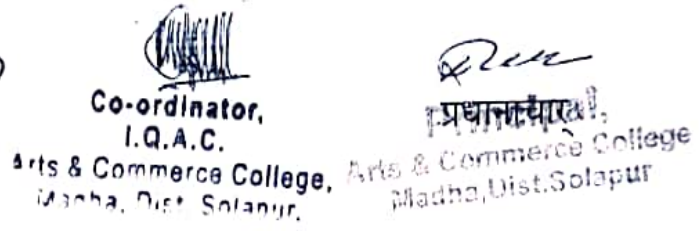 Co-ordinator,
I.Q.A.C.
Arts & Commerce College,
Madha, Dist. Solapur.
प्रधानाचार्य
Arts & Commerce College
Madha, Dist. Solapur